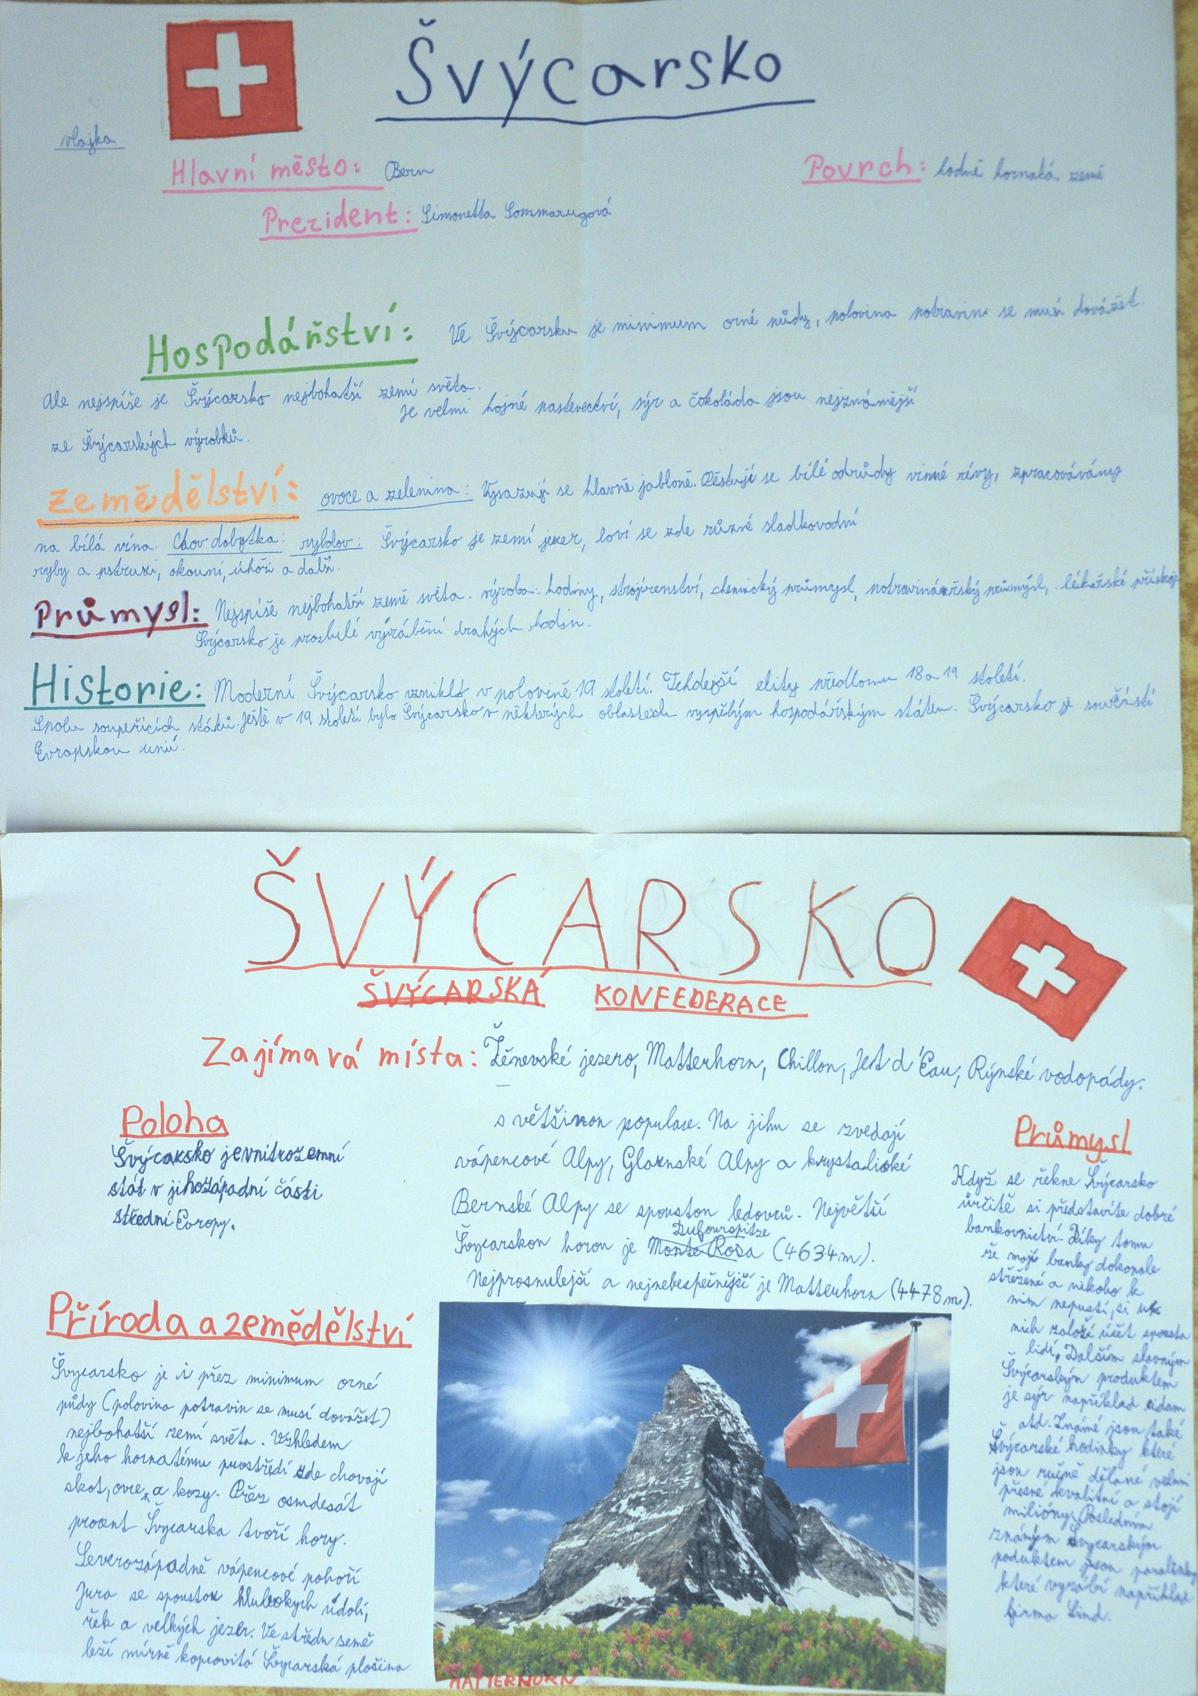 Švýcarsko
vlajka
Hlavní město: Bern
Povrch: hodně hornatá země
Prezident: Simonetta Sommarugová
Hospodářství: Ve Švýcarsku je minimum orné půdy, polovina potravin se musí dovážet.
Ale nejspíše je Švýcarsko nejbohatší zemí světa.
Je velmi hojné pastevectví, sýr a čokoláda jsou nejznámější
ze Švýcarských výrobků.
Zemědělství: ovoce a zelenina: Vysazují se hlavně jabloně. Pěstují se bílé odrůdy vinné révy, zpracovávány
na bílá vína. Chov dobytka: rybolov: Švýcarsko je zemí jezer, loví se zde různé sladkovodní
ryby a pstruzi, okouni, úhoři a další.
Průmysl: Nejspíše nejbohatší země světa. výroba: hodiny, strojírenství, chemický průmysl, potravinářský průmysl, lékařské přístoje
Švýcarsko je proslulé výrábění drahých hodin.
Historie: Moderní Švýcarsko vzniklo v polovině 19 století. Tehdejší elity předlomu 18 a 19 století.
Spolu soupeřících států. Ještě v 19 století bylo Švýcarsko v některých oblastech vyspělým hospodářským státem. Švýcarsko je součástí
Evropskou unií.
ŠVÝCARSKO
ŠVÝCARSKÁ KONFEDERACE
Zajímavá místa: Ženevské jezero, Matterhorn, Chillon, Jet d'Eau, Rýnské vodopády.
Poloha
Švýcarsko je vnitrozemní
stát v jihozápadní části
střední Evropy.
Příroda a zemědělství
Švycarsko je i přez minimum orné
půdy (polovina potravin se musí dovážet)
nejbohatší zemí světa. Vzhledem
k jeho hornatému prostředí zde chovají
skot, ovce, a kozy. Přez osmdesát
procent Švycarska tvoří hory.
Severozápadně vápencové pohoří
Jura se spoustou hlubokých údolí,
řek a velkých jezer. Ve středu země
leží mírně kopcovitá Švycarská plošina
s většinou populace. Na jihu se zvedají
vápencové Alpy, Glarnské Alpy a krystalické
Bernské Alpy se spoustou ledovců. Největší
Dufourspitze
Švycarskou horou je Monte Rosa (4634m).
Nejproslulejší a nejnebezpečnější je Matterhorn (4478m).
MATTERHORN
Průmysl
Když se řekne Švýcarsko
určitě si představíte dobré
bankovnictví. Díky tomu
že mají banky dokonale
střežené a nikoho k
nim nepustí, si u
nich založí účet spousta
lidí. Dalším slavným
Švýcarským produktem
je sýr například eidam
atd. Známé jsou také
Švýcarské hodinky které
jsou ručně dělané velmi
přesně kvalitní a stojí
milióny. Posledním
známým švycarským
poduktem jsou pralinky
které vyrábí například
firma Lind.